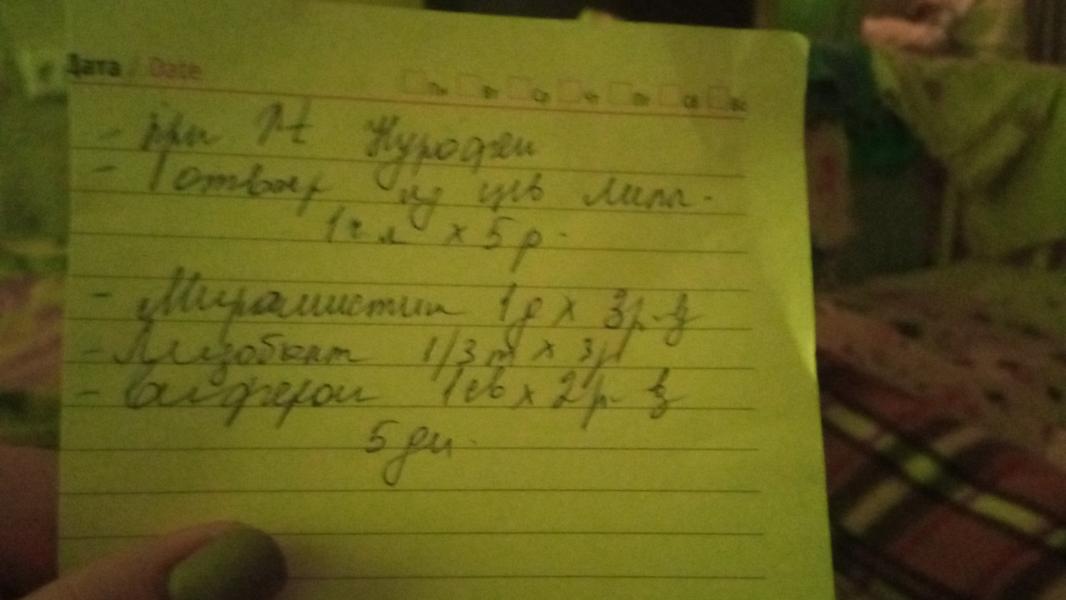 Дата / Date
Пн Вт Ср Чт Пт Сб Вс
- при ↑t Нурофен
- отвар из цв липы.
1 ч л х 5 р.
- Мирамистин 1д х 3р
- Лизобакт 1/3 т х 3р
- 1св х 2р
5 дн.